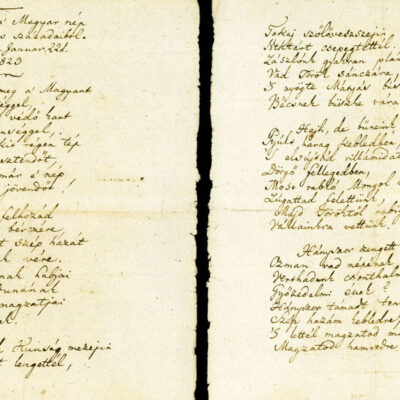 a' Magyar nép
s századaiból.
Januar. 22d.
823
meg a' Magyart
éggel,
védő kart
enséggel,
régen tép
sztendőt,
már e' nép
jövendőt!
felhozád
bérczére,
Szép hazát
vére.
nak habjai
Dunának
magzatjai
ak.
Kunság mezein
lengettél,
Tokaj szőlővesszején
Nektárt csepegtettél.
Zászlónk gyakran plán
Vad Török sánczára,
'S nyögte Mátyás bús
Bécsnek büszke vára.
Hajh, de bűneink
Gyúlt harag kebledben,
'S elsújtád villámidat
Dörgő fellegedben,
Most rabló Mongol
Zúgattad felettünk,
Majd Töröktől rab
Vállainkra vettünk.
Hányszor zengett
Ozman vad népének
Vert hadunk csonthalm
Győzedelmi ének!
Hányszor támadt ten
Szép hazám kebledre,
'S lettél magzatod mi
Magzatod hamvedre.